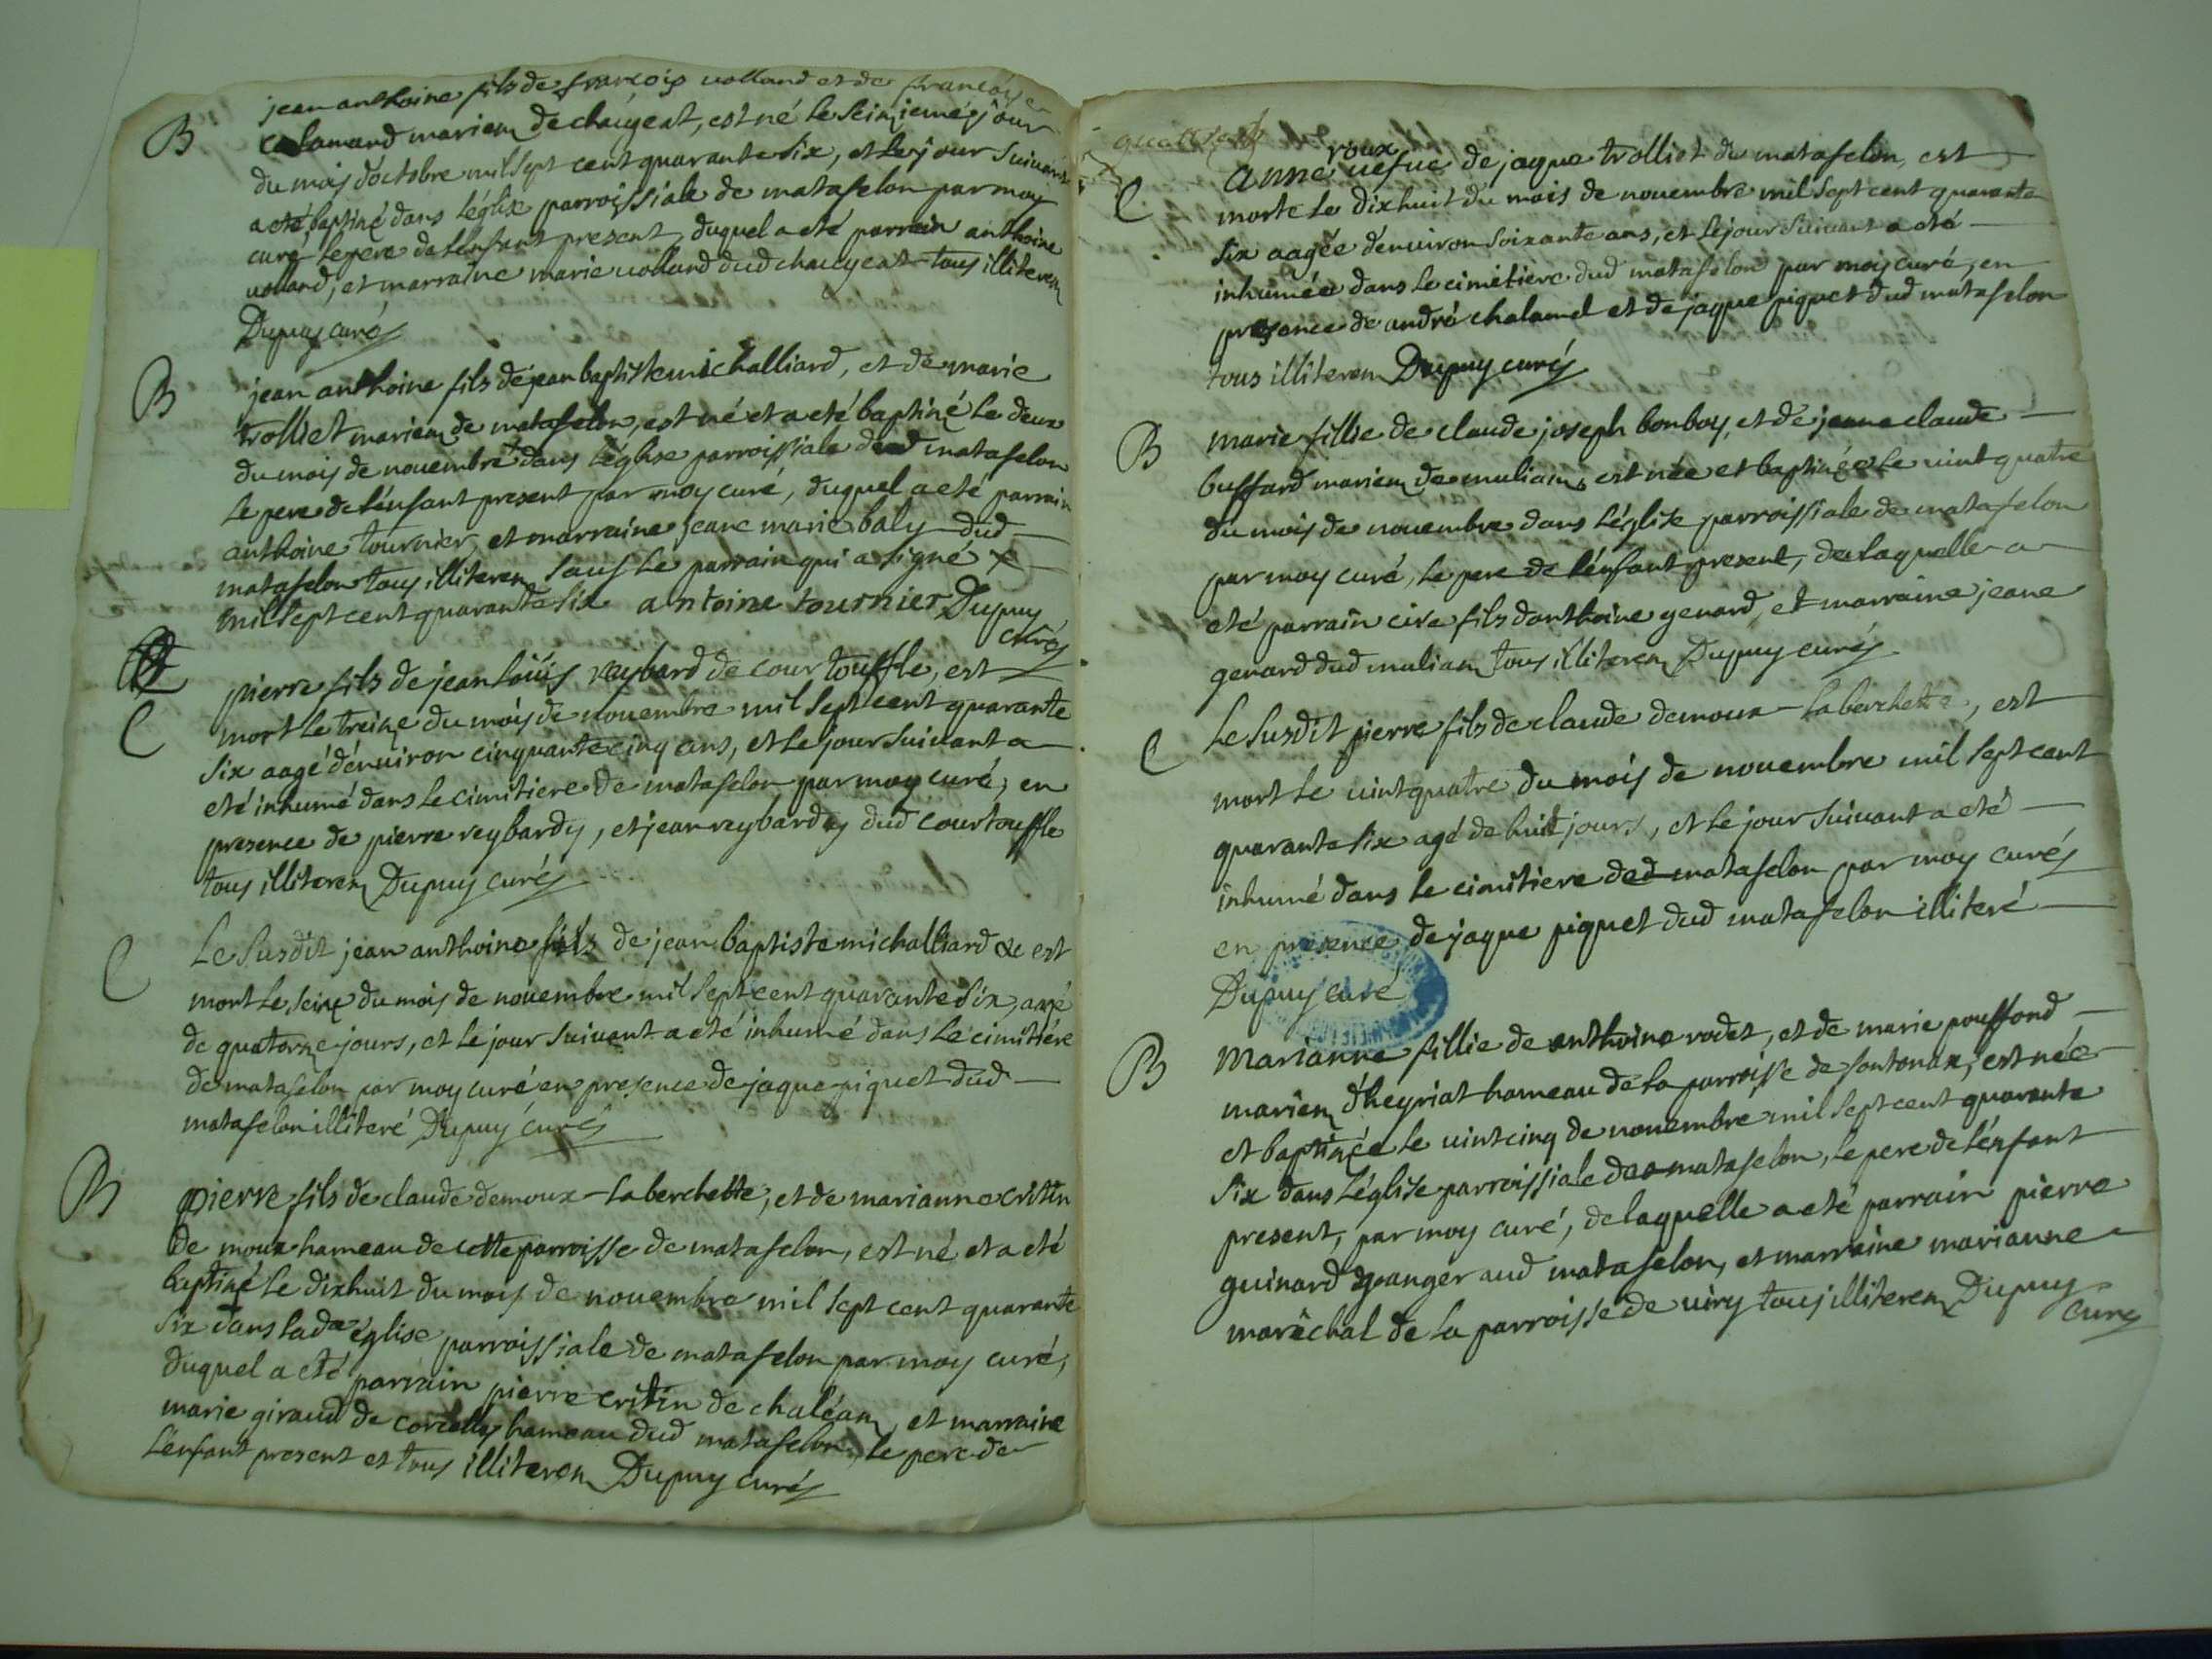 jean anthoine fils de françois volland et de françoise
B
calamand mariez de chaugeat, est né le seizieme jour
du mois d'octobre mil sept cent quarante six, et le jour suivant
a eté baptizé dans l'églize parroissiale de matafelon par moy
curé le pere de l'enfant present, duquel a eté parrain anthoine
volland, et marraine marie volland dud chaugeat tous illiterez
Dupuy curé
B
jean anthoine fils de jean baptiste michalliard, et de marie
trolliet mariez de matafelon, est né et a eté baptizé le deux
du mois de novembre dans l'églize parroissiale dud matafelon
le pere de l'enfant present par moy curé, duquel a eté parrain
anthoine tournier, et marraine jeane marie baly dud
matafelon tous illiterez sauf le parrain qui a signé x
mil sept cent quarante six antoine tournier Dupuy
curé
C
pierre fils de jean loüis reybard de courtouffle, est
mort le treize du mois de novembre mil sept cent quarante
six aagé d'environ cinquante cinq ans, et le jour suivant a
eté inhumé dans le cimitiere de matafelon par moy curé, en
presence de pierre reybardy, et jean reybardy dud courtouffle
tous illiterez Dupuy curé
C
Le susdit jean anthoine fils de jean baptiste michalliard &c est
mort le seize du mois de novembre mil sept cent quarante six, agé
de quatorze jours, et le jour suivant a eté inhumé dans le cimitiére
de matafelon par moy curé, en presence de jaque piquet dud
matafelon illiteré Dupuy curé
B
pierre fils de claude demoux-laberchette, et de marianne critin
de moux hameau de cette parroisse de matafelon, est né et a eté
baptizé le dixhuit du mois de novembre mil sept cent quarante
six dans lade eglise parroissiale de matafelon par moy curé,
duquel a eté parrain pierre critin de chaléaz, et marraine
marie giraud de corcelly hameau dud matafelon, le pere de
l'enfant present et tous illiterez Dupuy curé
roux
C
anne vefve de jaque trolliet de matafelon, est
morte le dixhuit du mois de novembre mil sept cent quarante
six aagée d'environ soixante ans, et le jour suivant a eté
inhumée dans le cimetiere dud matafelon par moy curé, en
presence de andré chalamel et de jaque piquet dud matafelon
tous illiterez Dupuy curé
B
marie fillie de claude joseph bonboy, et de jeanne claude
buffard mariez de muliaz, est née et baptizée le vint quatre
du mois de novembre dans l'églize parroissiale de matafelon
par moy curé, le pere de l'enfant present, de laquelle a
eté parrain cire fils d'anthoine genard, et marraine jeane
genard dud muliaz tous illiterez Dupuy curé
C
Le susdit pierre fils de claude demoux-laberchette, est
mort le vint quatre du mois de novembre mil sept cent
quarante six agé de huit jours, et le jour suivant a eté
inhumé dans le cimitiere ded matafelon par moy curé
en presence de jaque piquet dud matafelon illiteré
Dupuy curé
B
Marianne fillie de anthoine rodet, et de marie pouffond
mariez d'heyriat hameau de la parroisse de sontonax, est née
et baptizée le vint cinq de novembre mil sept cent quarante
six dans l'églize parroissiale de matafelon, le pere de l'enfant
present, par moy curé, de laquelle a eté parrain pierre
guinard granger aud matafelon, et marraine marianne
maréchal de la parroisse de viry tous illiterez Dupuy
curé